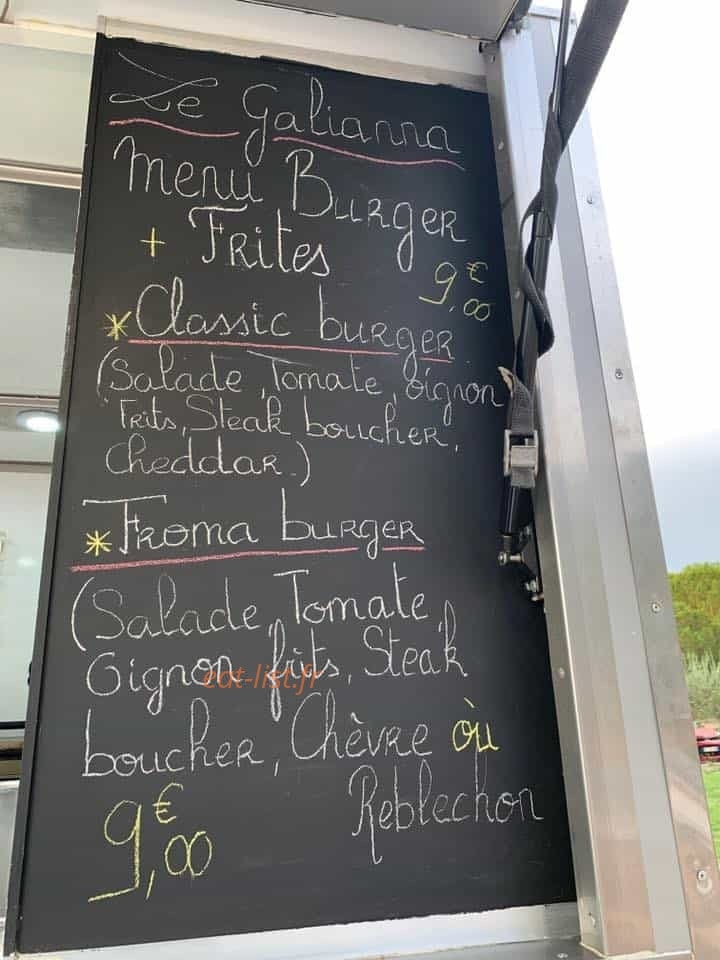 Le Galianna
Menu Burger
+ Frites
9€,00
*Classic burger
(Salade, Tomate, oignon
Frits, Steak boucher,
Cheddar.)
*Froma burger
(Salade, Tomate,
Oignon fits, Steak
eat-list.fr
boucher, Chèvre où
Reblechon
9€,00